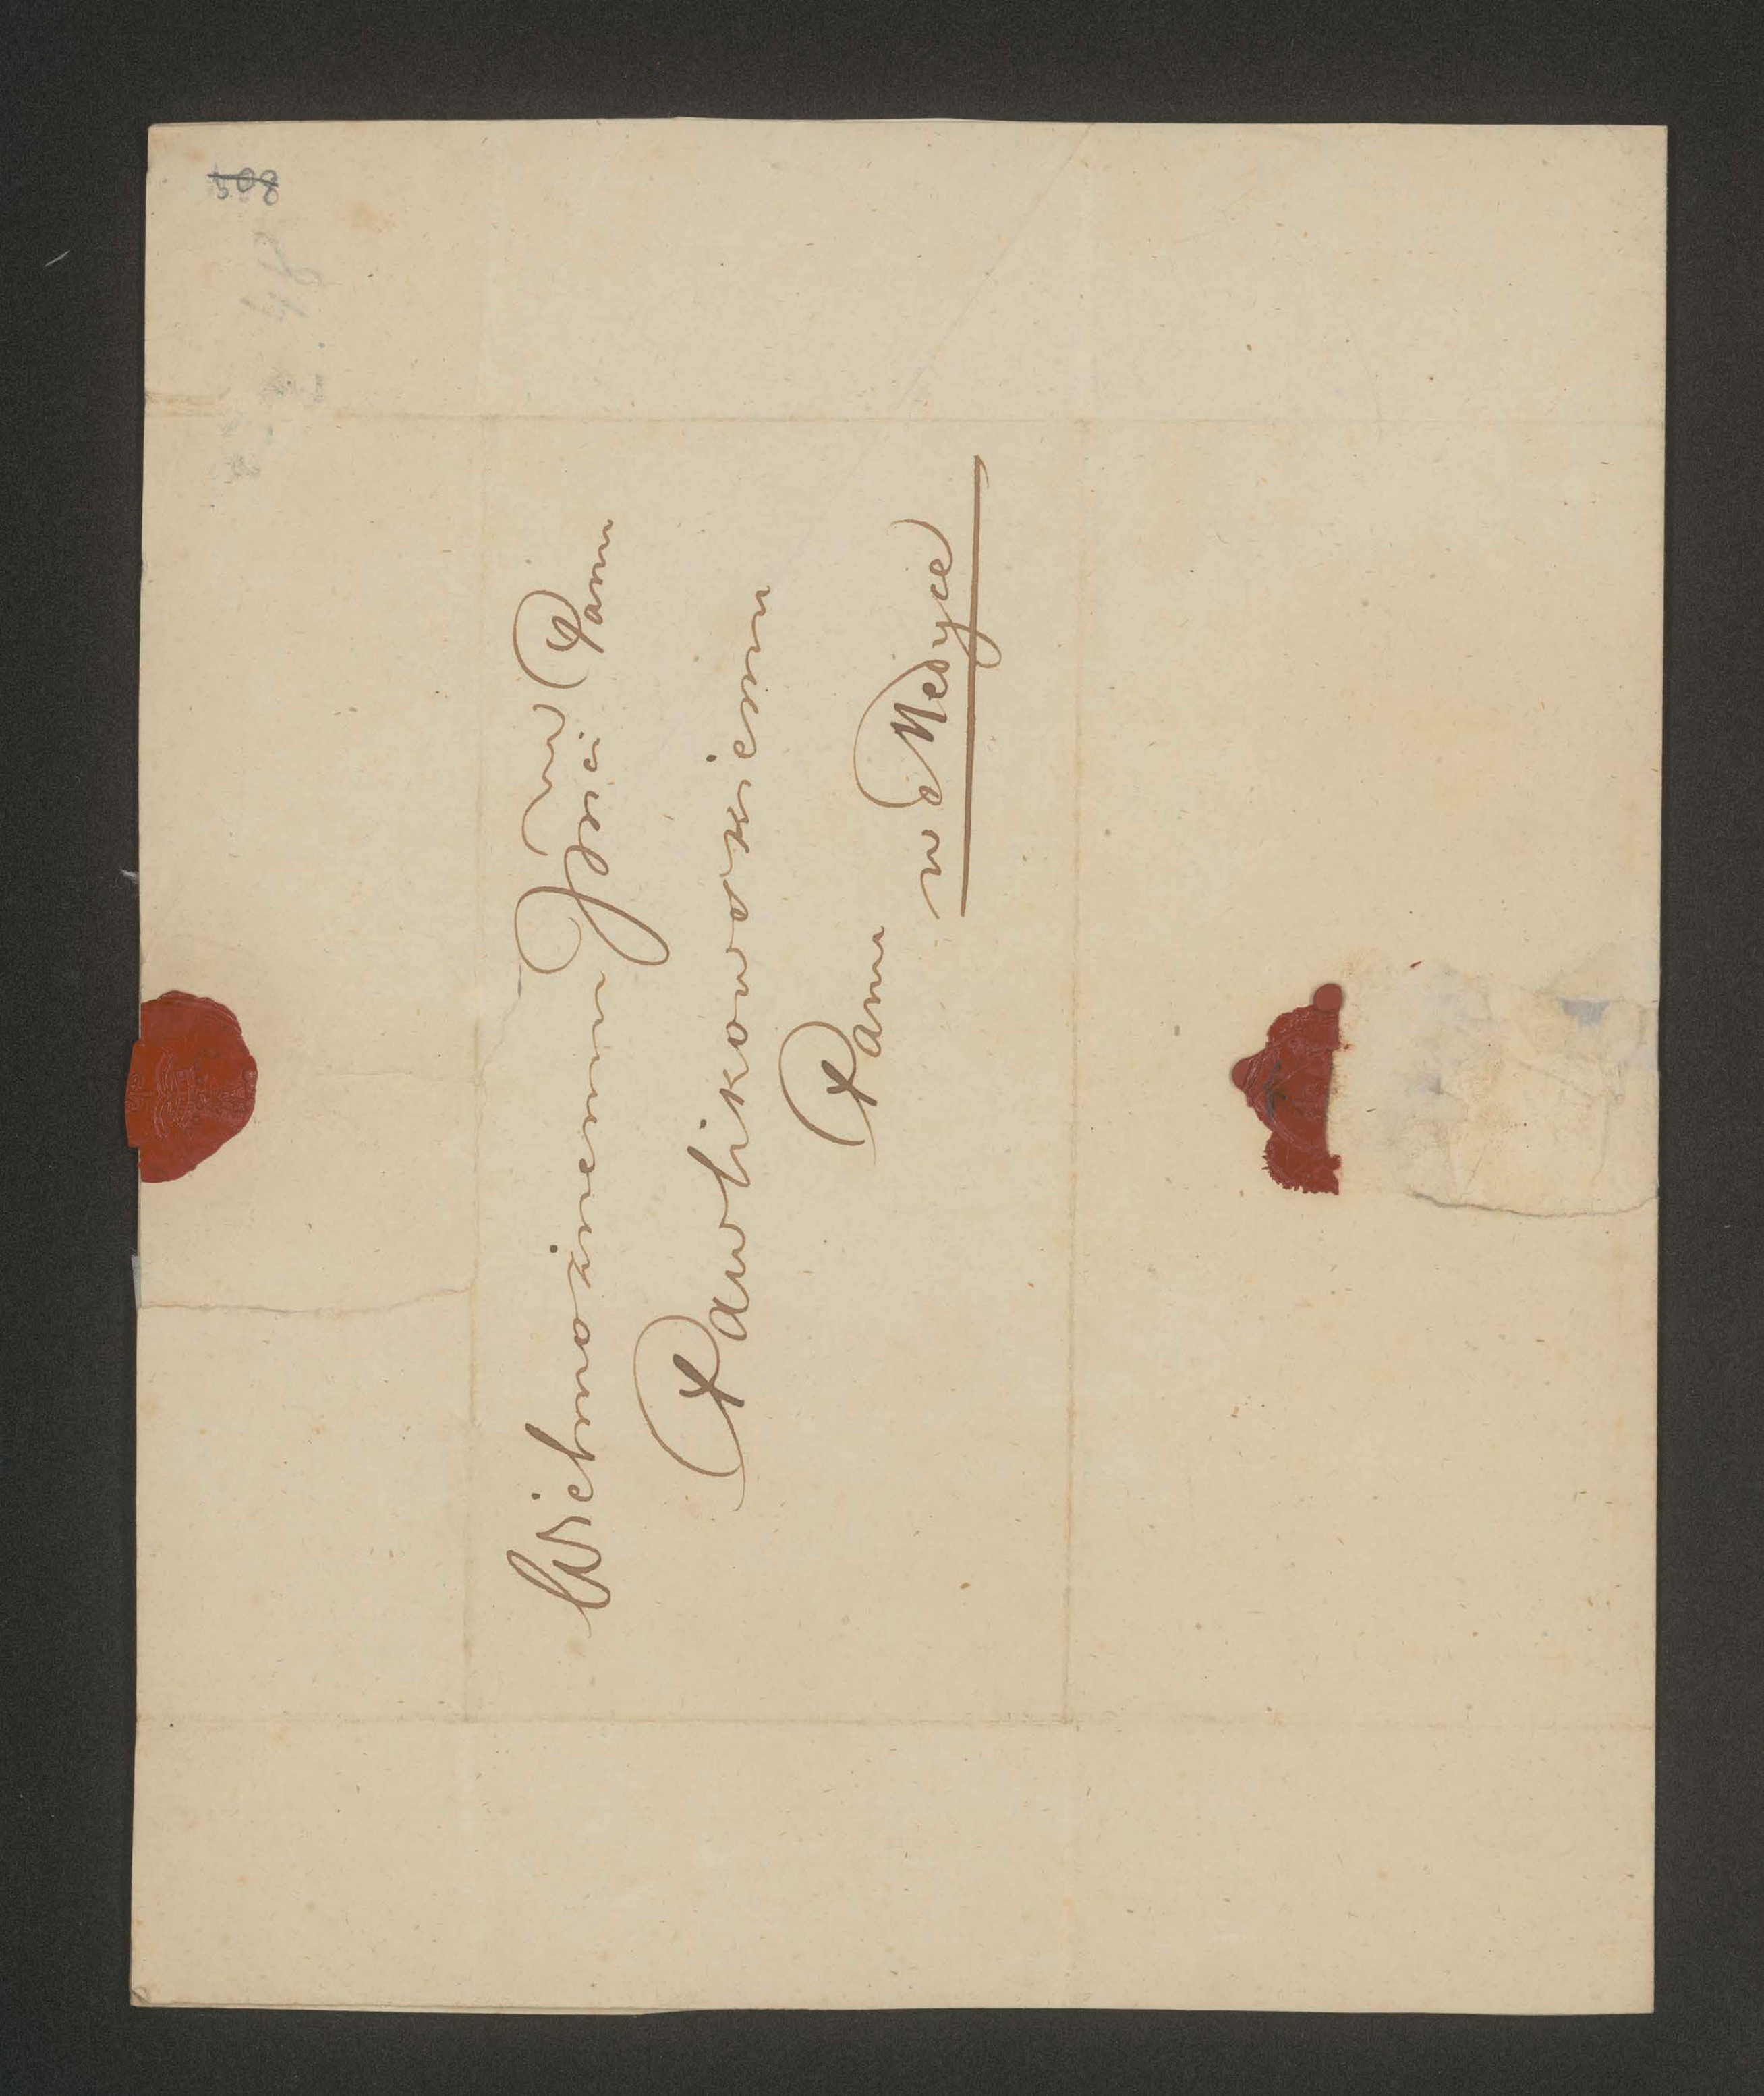 508
Wielmożnemu Jmć Panu
Pawlikowskiemu
Panu
w Medyce